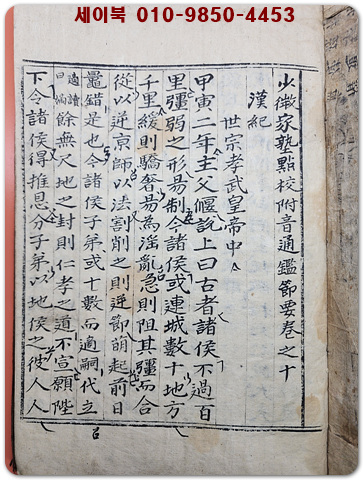 세이북 010-9850-4453
少微家塾點校附音通鑑節要卷之十
漢紀
世宗孝武皇帝中
甲寅二年主父偃說上曰古者諸侯不過百
里彊弱之形易制今諸侯或連城數十地方
千里緩則驕奢易為淫亂急則阻其彊而合
從以逆京師以法割削之則逆節萌起前日
鼂錯是也今諸侯子弟或十數而適嗣代立
適讀曰嫡餘無尺地之封則仁孝之道不宣願陛
下令諸侯得推恩分子弟以地侯之彼人人